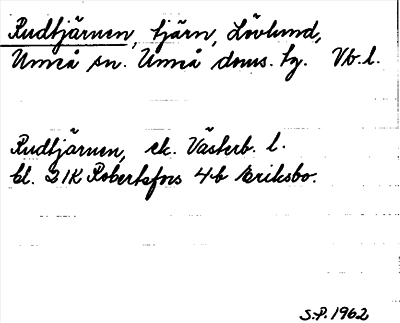 Rudtjärnen, tjärn, Lövlund,
Umeå sn. Umeå doms. tg. Vb. l.
Rudtjärnen, ek. Västerb. l.
bl. 21K Robertsfors 4b Eriksbo.
S.P. 1962